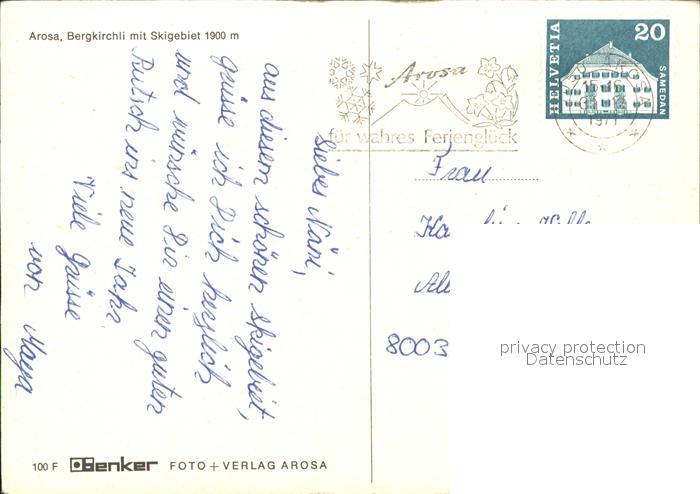 Arosa, Bergkirchli mit Skigebiet 1900 m
Liebes Näni,
aus diesem schönen Skigebiet,
grüsse ich Dich herzlich
und wünsche Dir einen guten
Rutsch ins neue Jahr.
Viele Grüsse
von Maya
100 F Benker FOTO + VERLAG AROSA
Arosa
für wahres Ferienglück
HELVETIA
20
SAMEDAN
1971
Frau
8003
privacy protection
Datenschutz